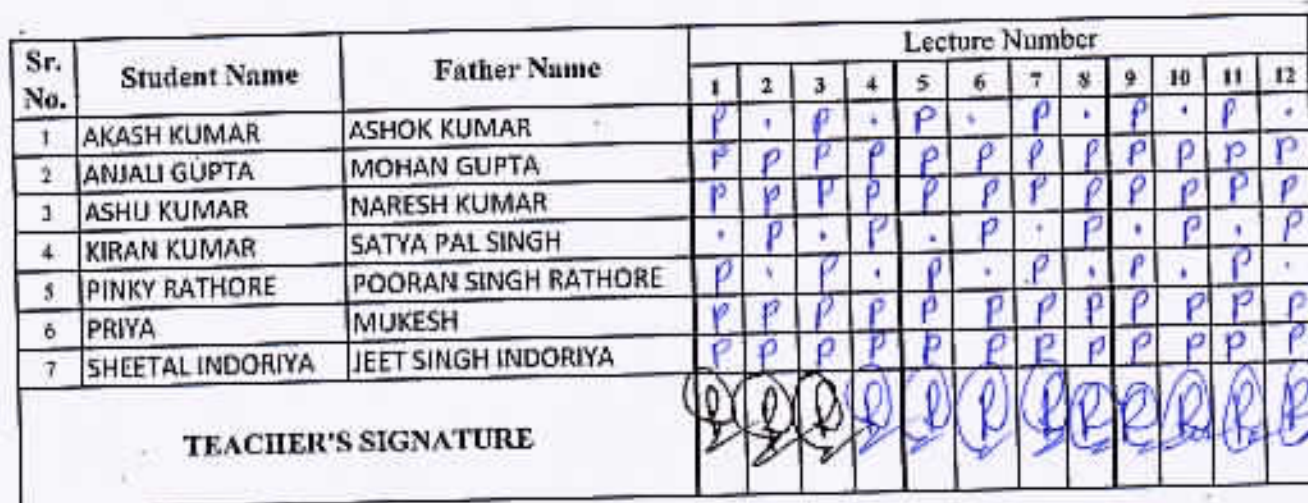 Lecture Number
Sr. No. Student Name Father Name 1 2 3 4 5 6 7 8 9 10 11 12
1 AKASH KUMAR ASHOK KUMAR P . P . P . P . P . P .
2 ANJALI GUPTA MOHAN GUPTA P P P P P P P P P P P P
3 ASHU KUMAR NARESH KUMAR P P P P P P P P P P P P
4 KIRAN KUMAR SATYA PAL SINGH . P . P . P . P . P . P
5 PINKY RATHORE POORAN SINGH RATHORE P . P . P . P . P . P .
6 PRIYA MUKESH P P P P P P P P P P P P
7 SHEETAL INDORIYA JEET SINGH INDORIYA P P P P P P P P P P P P
TEACHER'S SIGNATURE